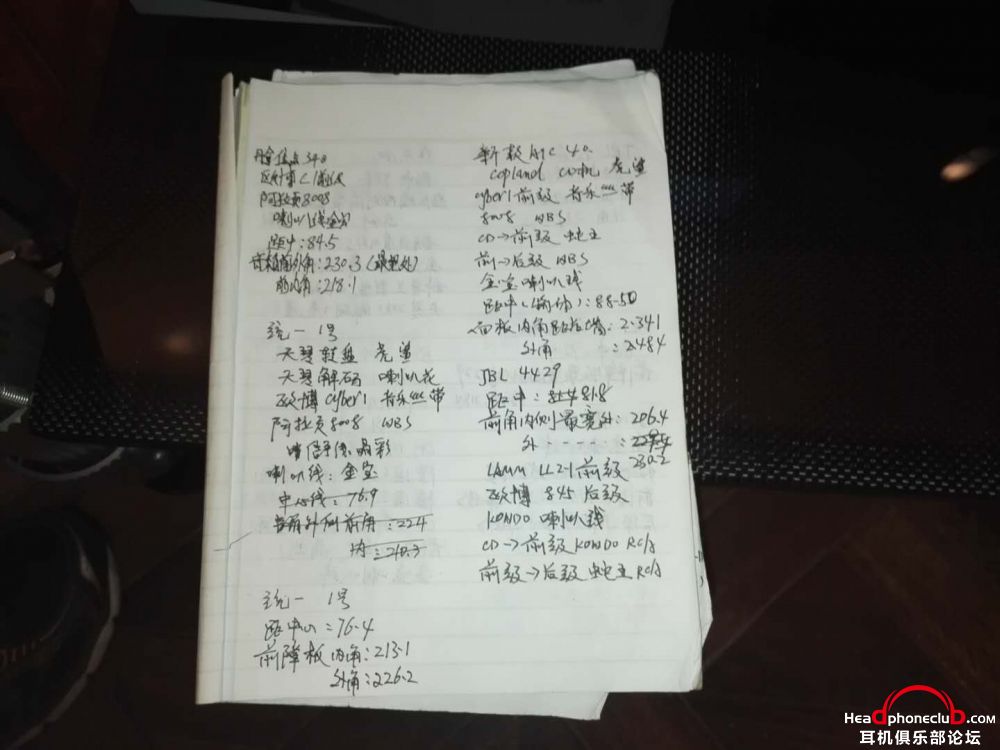 340
阿拉贡8008
喇叭线金宝
距中:84.5
箱前外角:230.3(最宽处)
前内角:218.1
统一 1号
天琴转盘 虎鲨
天琴解码 喇叭花
欧博cyber1 音乐丝带
阿拉贡8008 WBS
喇叭线:金宝
中心线:76.9
外侧前角:224
内:210.3
统一 1号
距中心:76.4
前障板内角:213.1
外角:226.2
新款ATC 40
Copland CD机 虎鲨
cyber1前级 音乐丝带
8008 WBS
CD→前级 蛇王
前→后级 WBS
金宝喇叭线
距中(箱体):88.50
面板内角距后墙:2.341
外角:2.484
JBL 4429
距中:81.8
前角内侧最宽处:206.4
外:
230.2
LAMM LL2.1前级
欧博845后级
KONDO喇叭线
CD→前级KONDO RCA
前级→后级 蛇王RCA
HeadphoneclubB.com
耳机俱乐部论坛